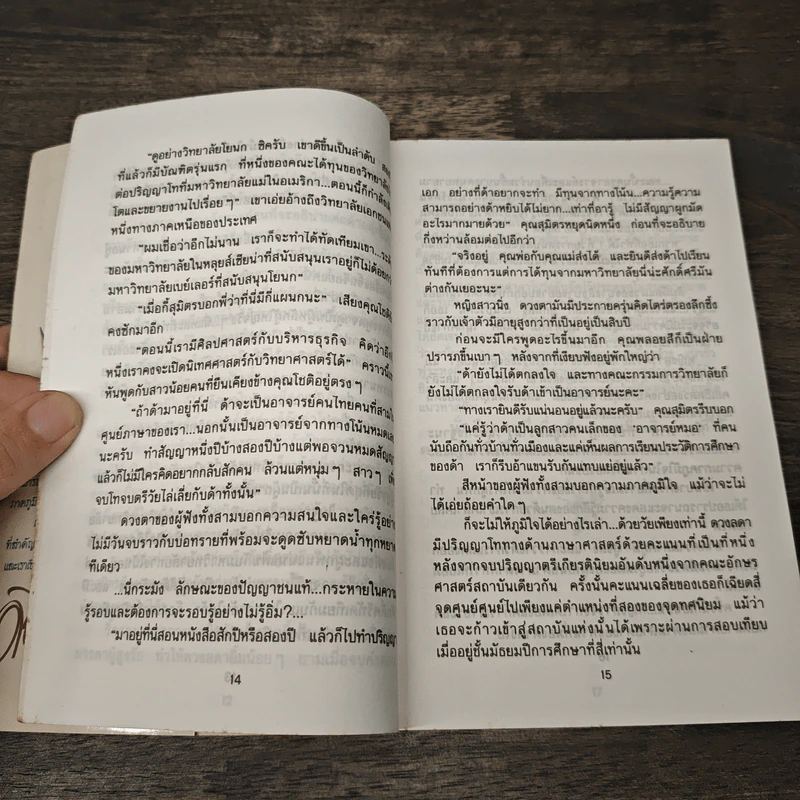 "ดูอย่างวิทยาลัยโยนก ซิครับ เขาดีขึ้นเป็นลำดับ
ที่แล้วก็มีบัณฑิตรุ่นแรก ที่หนึ่งของคณะได้ทุนของวิทยาลัย
ต่อปริญญาโทที่มหาวิทยาลัยแม่ในอเมริกา...ตอนนี้ก็กำลัง
โตและขยายงานไปเรื่อยๆ" เขาเอ่ยอ้างถึงวิทยาลัยเอกชน
หนึ่งทางภาคเหนือของประเทศ
"ผมเชื่อว่าอีกไม่นาน เราก็จะทำได้ทัดเทียมเขา...
ของมหาวิทยาลัยในหลุยส์เซียน่าที่สนับสนุนเราอยู่ก็ไม่ด้อย
มหาวิทยาลัยเบย์เลอร์ที่สนับสนุนโยนก"
"เมื่อกี้สุมิตรบอกพี่ว่าที่นี่มีกี่แผนกนะ" เสียงคุณโชติ
คงซักมาอีก
"ตอนนี้เรามีศิลปศาสตร์กับบริหารธุรกิจ คิดว่าอีก
หนึ่งเราคงจะเปิดนิเทศศาสตร์กับวิทยาศาสตร์ได้" คราวนี้
หันพูดกับสาวน้อยคนที่ยืนเคียงข้างคุณโชติอยู่ตรงๆ
"ถ้าด้ามาอยู่ที่นี่ ด้าจะเป็นอาจารย์คนไทยคนที่สาม
ศูนย์ภาษาของเรา...นอกนั้นเป็นอาจารย์จากทางโน้นหมด
นะครับ ทำสัญญาหนึ่งปีบ้างสองปีบ้างแต่พอจวนหมดสัญญา
แล้วก็ไม่มีใครคิดอยากกลับสักคน ล้วนแต่หนุ่มๆ สาวๆ
จบโทจบตรีวัยไล่เลี่ยกับด้าทั้งนั้น"
ดวงตาของผู้ฟังทั้งสามบอกความสนใจและใคร่รู้อย่าง
ไม่มีวันจบราวกับบ่อทรายที่พร้อมจะดูดซับหยาดน้ำทุกหยาด
ทีเดียว
...นี่กระมัง ลักษณะของปัญญาชนแท้...กระหายในความ
รู้รอบและต้องการจะรอบรู้อย่างไม่รู้อิ่ม?...
"มาอยู่ที่นี่สอนหนังสือสักปีหรือสองปี แล้วก็ไปทำปริญญา
14
เอก อย่างที่ด้าอยากจะทำ มีทุนจากทางโน้น...ความรู้ความ
สามารถอย่างด้าหยิบได้ไม่ยาก...เท่าที่อารู้ ไม่มีสัญญาผูกมัด
อะไรมากมายด้วย" คุณสุมิตรหยุดนิดหนึ่ง ก่อนที่จะอธิบาย
กึ่งหว่านล้อมต่อไปอีกว่า
"จริงอยู่ คุณพ่อกับคุณแม่ส่งได้ และยินดีส่งด้าไปเรียน
ทันทีที่ต้องการแต่การได้ทุนจากมหาวิทยาลัยนี่น่ะศักดิ์ศรีมัน
ต่างกันเยอะนะ"
หญิงสาวนิ่ง ดวงตามันมีประกายครุ่นคิดไตร่ตรองลึกซึ้ง
ราวกับเจ้าตัวมีอายุสูงกว่าที่เป็นอยู่เป็นสิบปี
ก่อนจะมีใครพูดอะไรขึ้นมาอีก คุณพลอยสีก็เป็นฝ่าย
ปรารภขึ้นเบาๆ หลังจากที่เงียบฟังอยู่พักใหญ่ว่า
"ด้ายังไม่ได้ตกลงใจ และทางคณะกรรมการวิทยาลัยก็
ยังไม่ได้ตกลงใจรับด้าเข้าเป็นอาจารย์นะคะ"
"ทางเรายินดีรับแน่นอนอยู่แล้วนะครับ" คุณสุมิตรรีบบอก
"แค่รู้ว่าด้าเป็นลูกสาวคนเล็กของ 'อาจารย์หมอ' ที่คน
นับถือกันทั่วบ้านทั่วเมืองและแค่เห็นผลการเรียนประวัติการศึกษา
ของด้า เราก็รีบอ้าแขนรับกันแทบแย่อยู่แล้ว"
สีหน้าของผู้ฟังทั้งสามบอกความภาคภูมิใจ แม้ว่าจะไม่
ได้เอ่ยถ้อยคำใดๆ
ก็จะไม่ให้ภูมิใจได้อย่างไรเล่า...ด้วยวัยเพียงเท่านี้ ดวงลดา
มีปริญญาโททางด้านภาษาศาสตร์ด้วยคะแนนที่เป็นที่หนึ่ง
หลังจากจบปริญญาตรีเกียรตินิยมอันดับหนึ่งจากคณะอักษร
ศาสตร์สถาบันเดียวกัน ครั้งนั้นคะแนนเฉลี่ยของเธอก็เฉียดสี่
จุดศูนย์ศูนย์ไปเพียงแค่ตำแหน่งที่สองของจุดทศนิยม แม้ว่า
เธอจะก้าวเข้าสู่สถาบันแห่งนั้นได้เพราะผ่านการสอบเทียบ
เมื่ออยู่ชั้นมัธยมปีการศึกษาที่สี่เท่านั้น
15